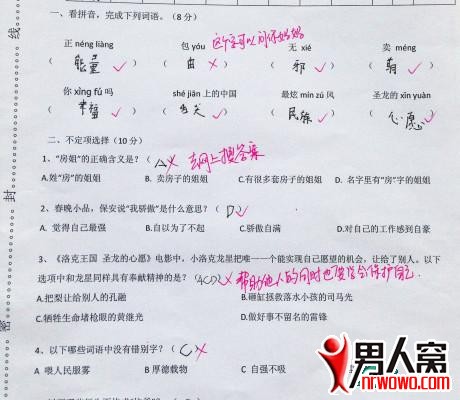 一、看拼音，完成下列词语。（8 分）
这个字可以问你妈妈
正 néng liàng 包 yóu 无 xié 卖 méng
（ 能量 ✓ ） （ 由 × ） （ 邪 ✓ ） （ 萌 ✓ ）
你 xìng fú 吗 shé jiān 上的中国 最炫 mín zú 风 圣龙的 xīn yuàn
（ 幸福 ✓ ） （ 舌尖 ✓ ） （ 民族 ✓ ） （ 心愿 ✓ ）
二、不定项选择（10 分）
1、“房姐”的正确含义是？（ A × 去网上搜答案
A.姓“房”的姐姐 B. 卖房子的姐姐 C.有很多套房子的姐姐 D. 名字里有“房”字的姐姐
2、春晚小品，保安说“我骄傲”是什么意思？（ D ✓
A. 觉得自己最强 B.自以为了不起 C.骄傲自满 D.对自己的工作感到自豪
3、《洛克王国 圣龙的心愿》电影中，小洛克龙星把唯一一个能实现自己愿望的机会，让给了别人。以下
选项中和龙星同样具有奉献精神的是？（ACD × 帮助他人的同时也要学会保护自己
A.把梨让给别人的孔融 B.砸缸拯救落水小孩的司马光
C.牺牲生命堵枪眼的黄继光 D.做好事不留名的雷锋
4、以下哪些词语中没有错别字？（ C ×
A 喂人民服雾 B 厚德载物 C 自强不吸
线
封
密
男人窝
nrwowo.com